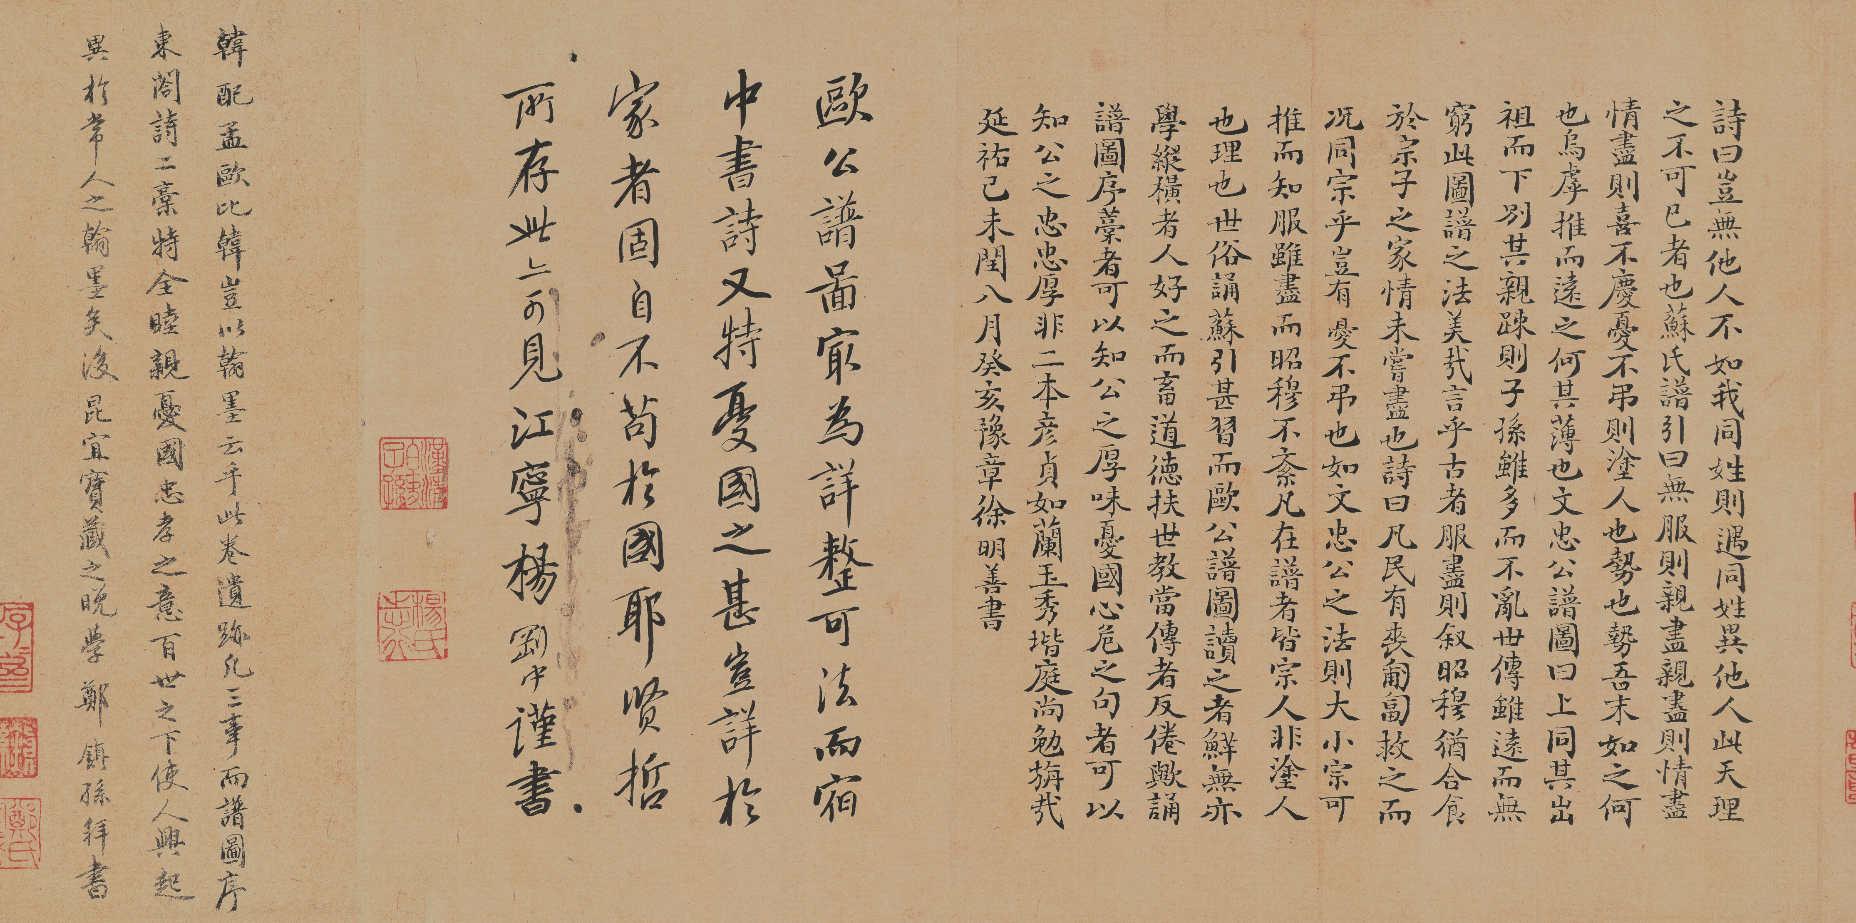 詩曰豈無他人不如我同姓則遇同姓異他人此天理
之不可已者也蘇氏譜引曰無服則親盡親盡則情盡
情盡則喜不慶憂不弔則塗人也勢也勢吾末如之何
也烏虖推而遠之何其薄也文忠公譜圖曰上同其出
祖而下別其親踈則子孫雖多而不亂世傳雖遠而無
窮此圖譜之法美哉言乎古者服盡則叙昭穆猶合食
於宗子之家情未嘗盡也詩曰凡民有喪匍匐救之而
况同宗乎豈有憂不弔也如文忠公之法則大小宗可
推而知服雖盡而昭穆不紊凡在譜者皆宗人非塗人
也理也世俗誦蘇引甚習而歐公譜圖讀之者鮮無亦
學縱橫者人好之而畜道德扶世教當傳者反倦歟誦
譜圖序藁者可以知公之厚味憂國心危之句者可以
知公之忠忠厚非二本彦貞如蘭玉秀堦庭尚勉旃哉
延祐己未閏八月癸亥豫章徐明善書
歐公譜啚冣為詳整可法而宿
中書詩又特憂國之甚豈詳於
家者固自不苟於國耶賢哲
所存此亦可見江寧楊剛中謹書
韓配孟歐比韓豈以翰墨云乎此卷遺跡凡三事而譜圖序
東閤詩二藁特全睦親憂國忠孝之意百世之下使人興起
異於常人之翰墨矣後昆宜寶藏之晚學鄭鎮孫拜書
楊氏志行
鄭氏